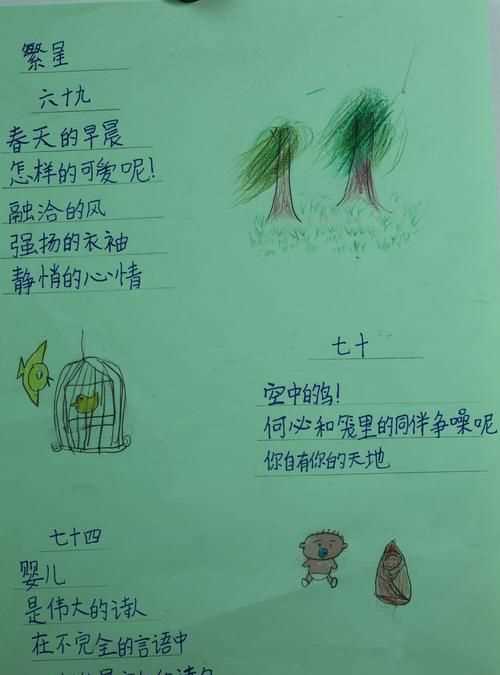 繁星
六十九
春天的早晨
怎样的可爱呢!
融洽的风
强扬的衣袖
静悄的心情
七十
空中的鸟!
何必和笼里的同伴争噪呢
你自有你的天地
七十四
婴儿
是伟大的诗人
在不完全的言语中